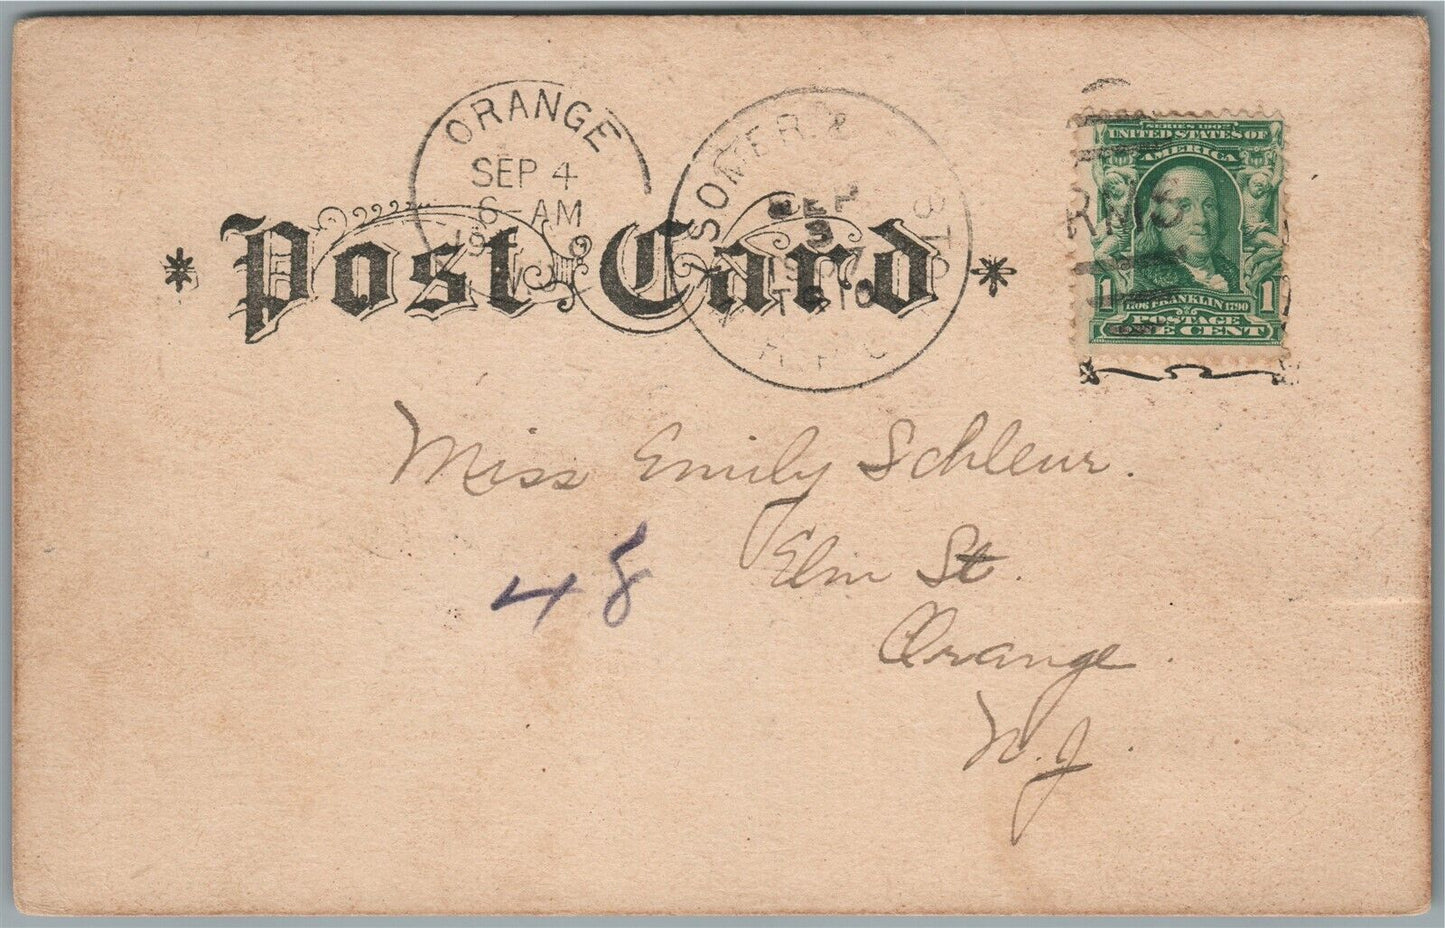 ORANGE
SEP 4
6 - AM
SOMER. &
SEP
3
1907
R.P.O.
* Post Card *
SERIES 1902
UNITED STATES OF
AMERICA
RMS
1 1706 FRANKLIN 1790 1
POSTAGE
ONE CENT
Miss Emily Schleur.
48
Elm St.
Orange.
N.J.